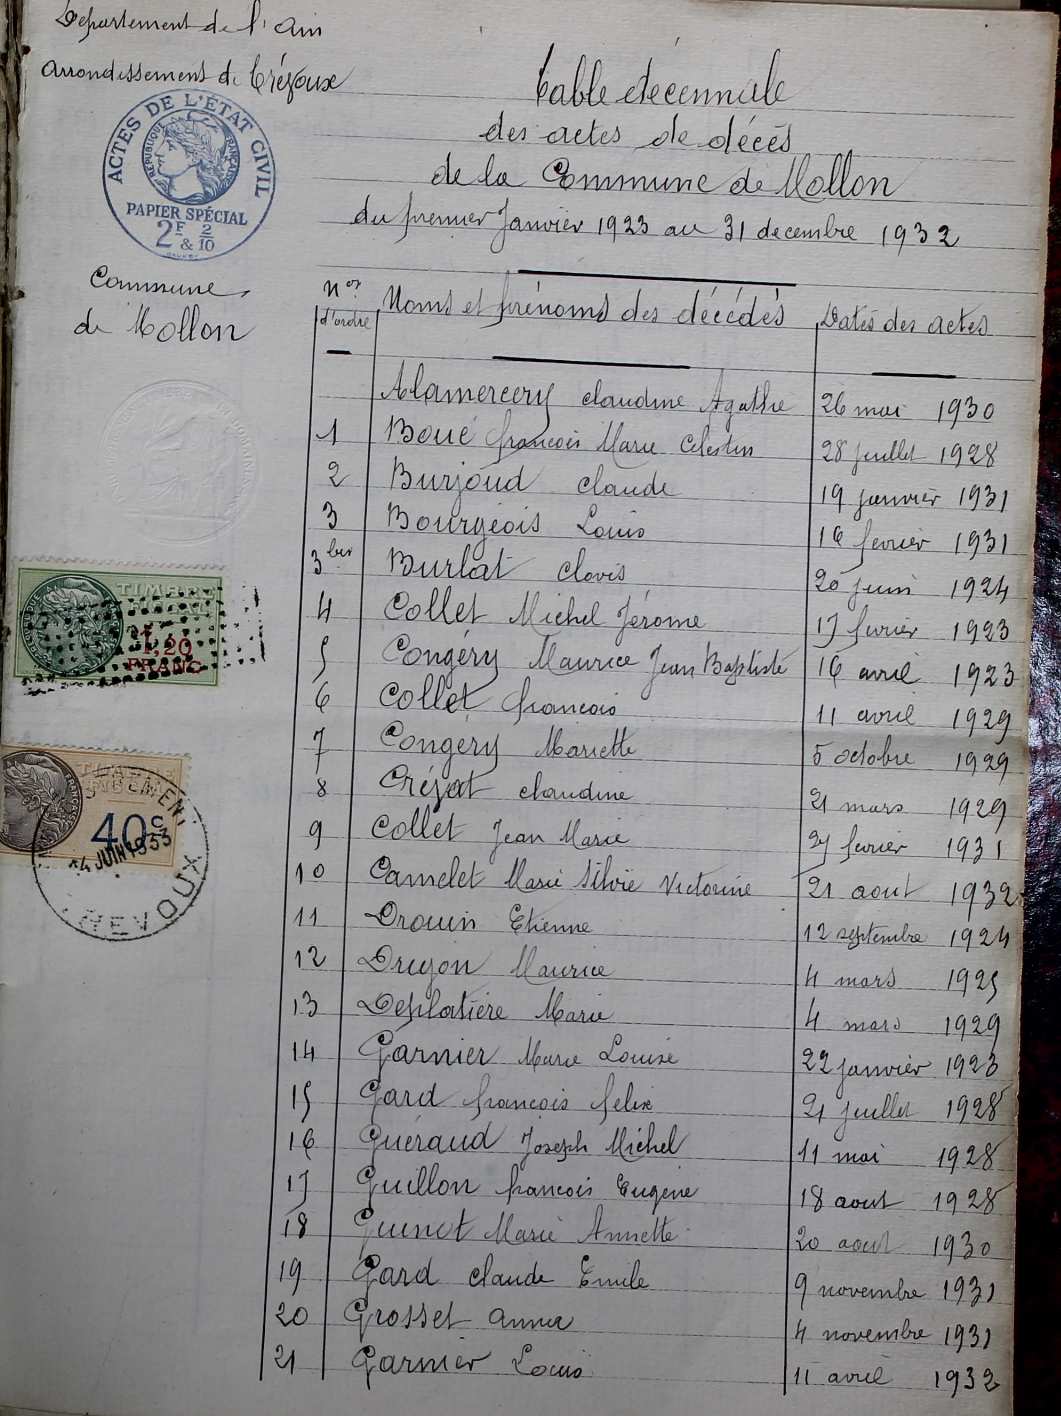 Departement de l'Ain
Arrondissement de Trévoux
ACTES DE L'ÉTAT CIVIL
RÉPUBLIQUE FRANÇAISE
PAPIER SPÉCIAL
2F & 2/10
Commune
de Mollon
Table décennale
des actes de décès
de la Commune de Mollon
du premier Janvier 1923 au 31 decembre 1932
Nos d'ordre Noms et prénoms des décédés Dates des actes
Alamercery claudine Agathe 26 mai 1930
1 Boué francois Marie Celestin 28 juillet 1928
2 Burjoud claude 19 janvier 1931
3 Bourgeois Louis 16 fevrier 1931
3 ber Burlat clovis 20 juin 1924
4 Collet Michel Jérome 17 fevrier 1923
5 Congéry Maurice Jean Baptiste 16 avril 1923
6 Collet francois 11 avril 1929
7 Congéry Mariette 5 octobre 1929
8 Crépat claudine 21 mars 1929
9 Collet Jean Marie 21 fevrier 1931
10 Camelet Marie Silvie Victorine 21 aout 1932
11 Drouin Etienne 12 septembre 1924
12 Druyon Maurice 4 mars 1925
13 Deplatière Marie 4 mars 1929
14 Garnier Marie Louise 22 janvier 1923
15 Gard francois felix 21 juillet 1928
16 Gueraud Joseph Michel 11 mai 1928
17 Guillon francois Eugène 18 aout 1928
18 Guinot Marie Annette 20 aout 1930
19 Gard claude Emile 9 novembre 1931
20 Grosset Anna 4 novembre 1931
21 Garnier Louis 11 avril 1932
TIMBRE
1,20
FRANC
40c
14 JUIN 1933
TREVOUX